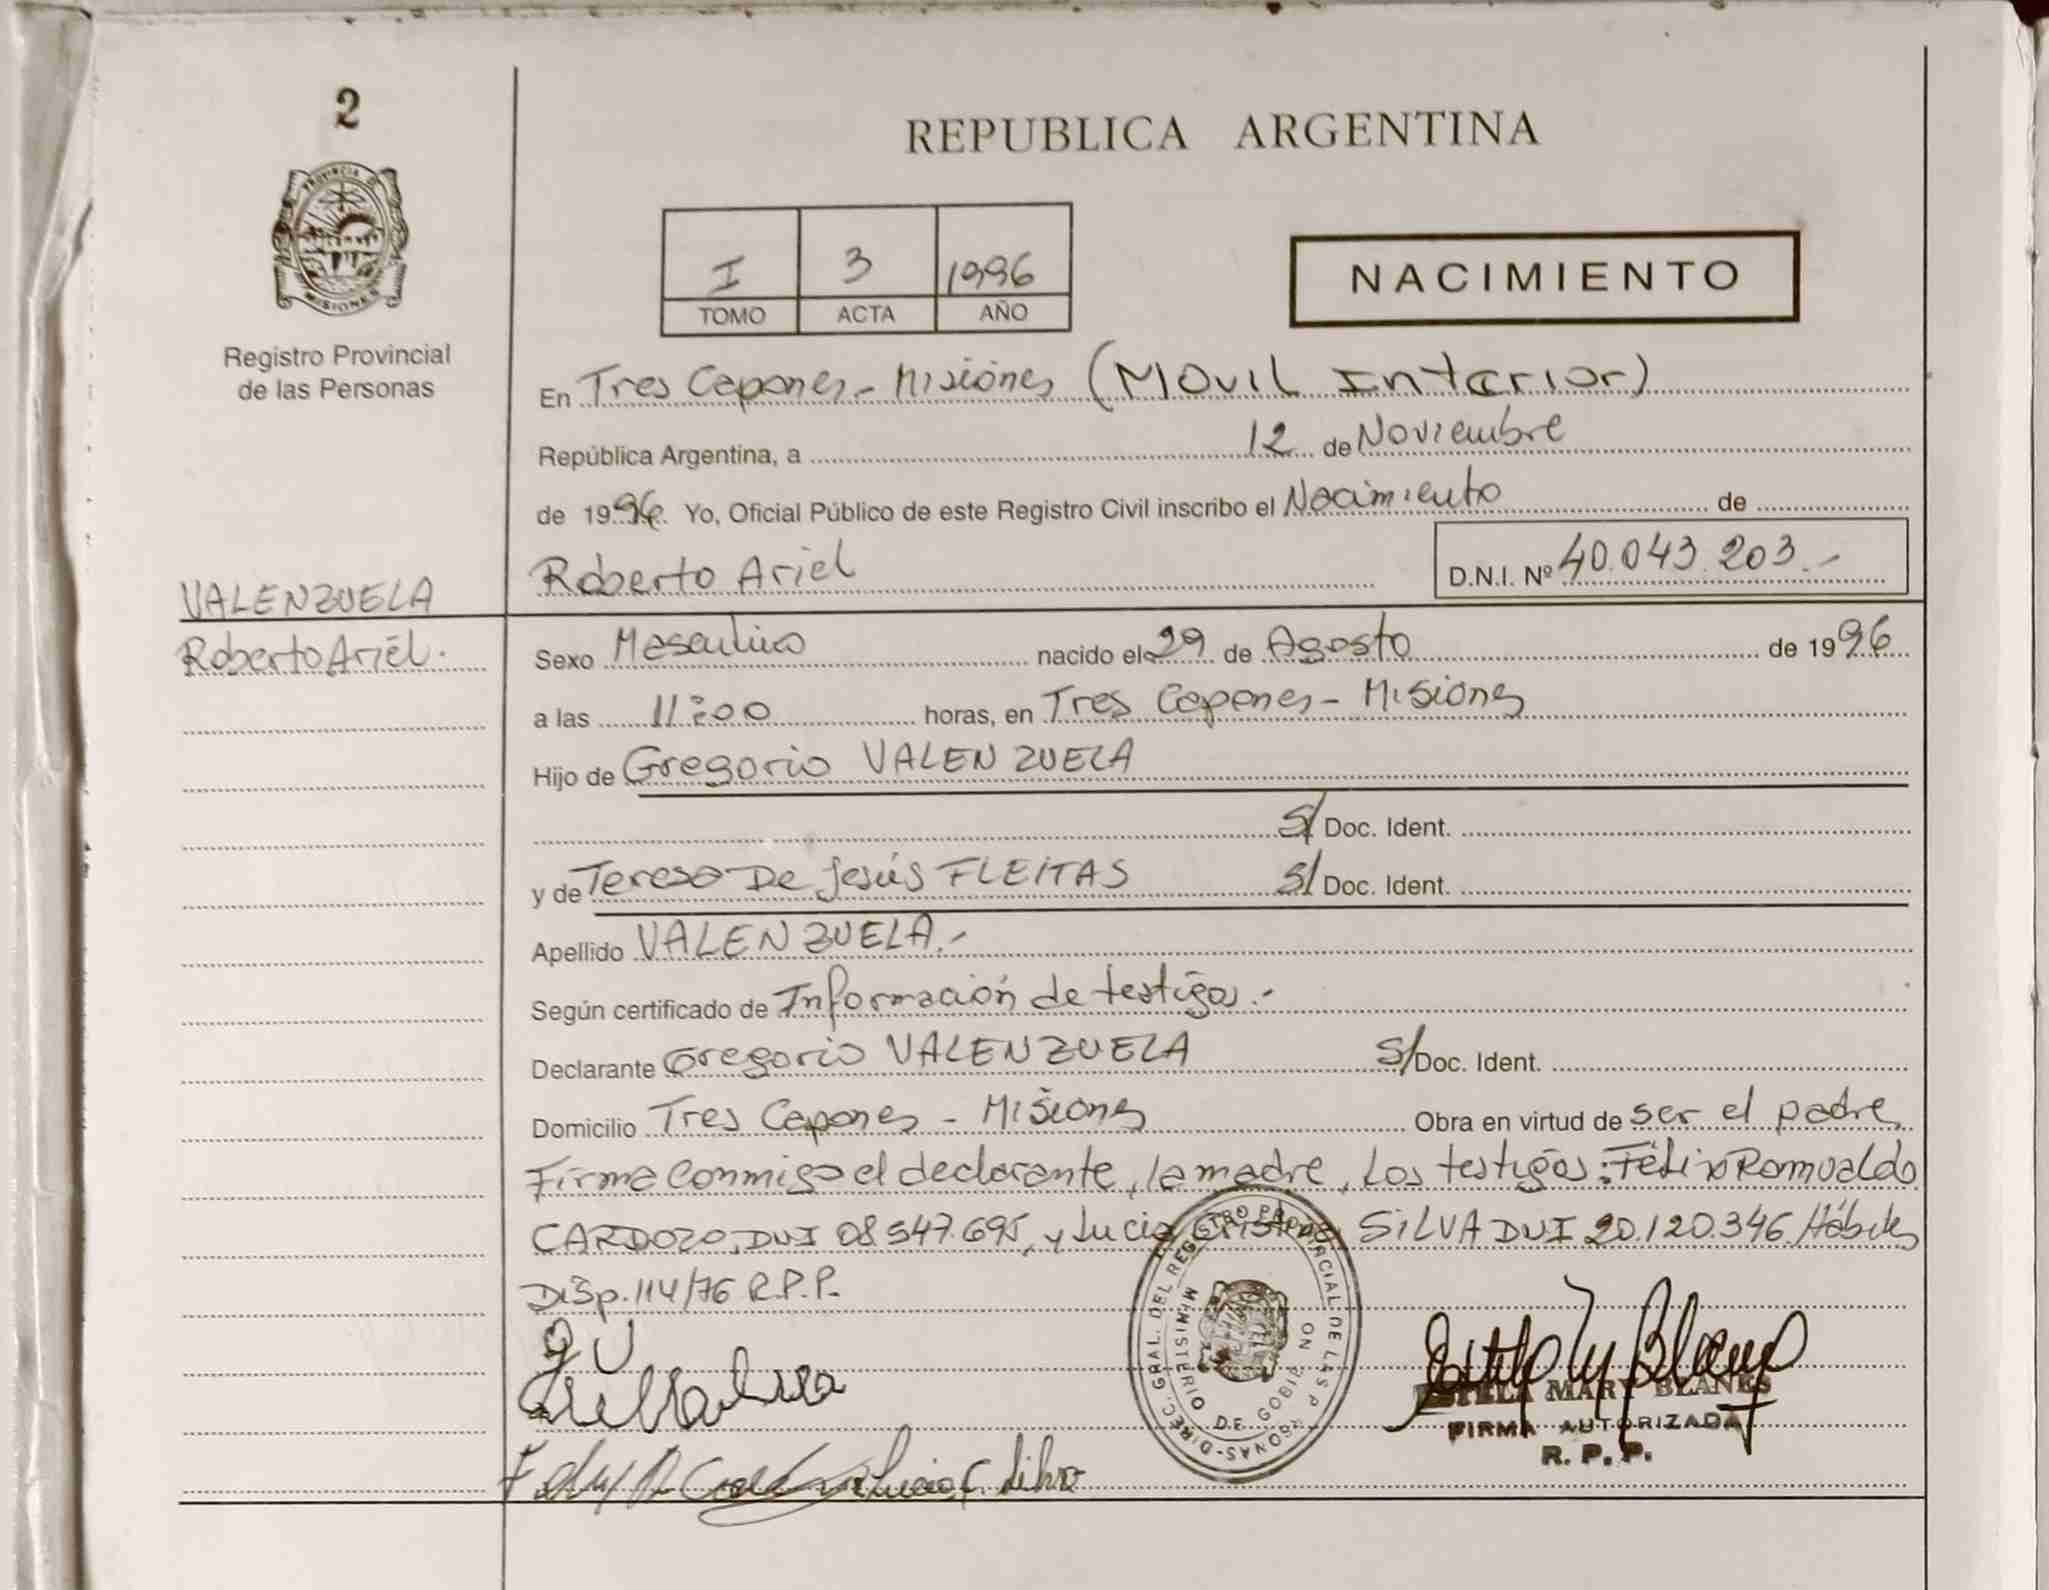 2
PROVINCIA D
MISIONES
Registro Provincial
de las Personas
VALENZUELA
Roberto Ariel.
REPUBLICA ARGENTINA
I 3 1996
TOMO ACTA AÑO
NACIMIENTO
En Tres Capones - Misiones (Movil Interior)
República Argentina, a 12 de Noviembre
de 1996. Yo, Oficial Público de este Registro Civil inscribo el Nacimiento de
Roberto Ariel D.N.I. Nº 40.043.203.-
Sexo Masculino nacido el 29 de Agosto de 1996
a las 11:00 horas, en Tres Capones - Misiones
Hijo de Gregorio VALENZUELA
S/ Doc. Ident.
y de Teresa De Jesús FLEITAS S/ Doc. Ident.
Apellido VALENZUELA.-
Según certificado de Información de testigos.-
Declarante Gregorio VALENZUELA S/ Doc. Ident.
Domicilio Tres Capones - Misiones Obra en virtud de ser el padre
Firma conmigo el declarante, la madre, Los testigos: Félix Romualdo
CARDOZO, DNI 08547.695, y Lucia Cristina SILVA DNI 20.120.346 Hábiles
Disp. 114/76 R.P.P.
DIREC. GRAL. DEL REGISTRO PROVINCIAL DE LAS PERSONAS
MINISTERIO DE GOBIERNO
ESTELA MARY BLANES
FIRMA AUTORIZADA
R. P. P.
Lucia C. Silva